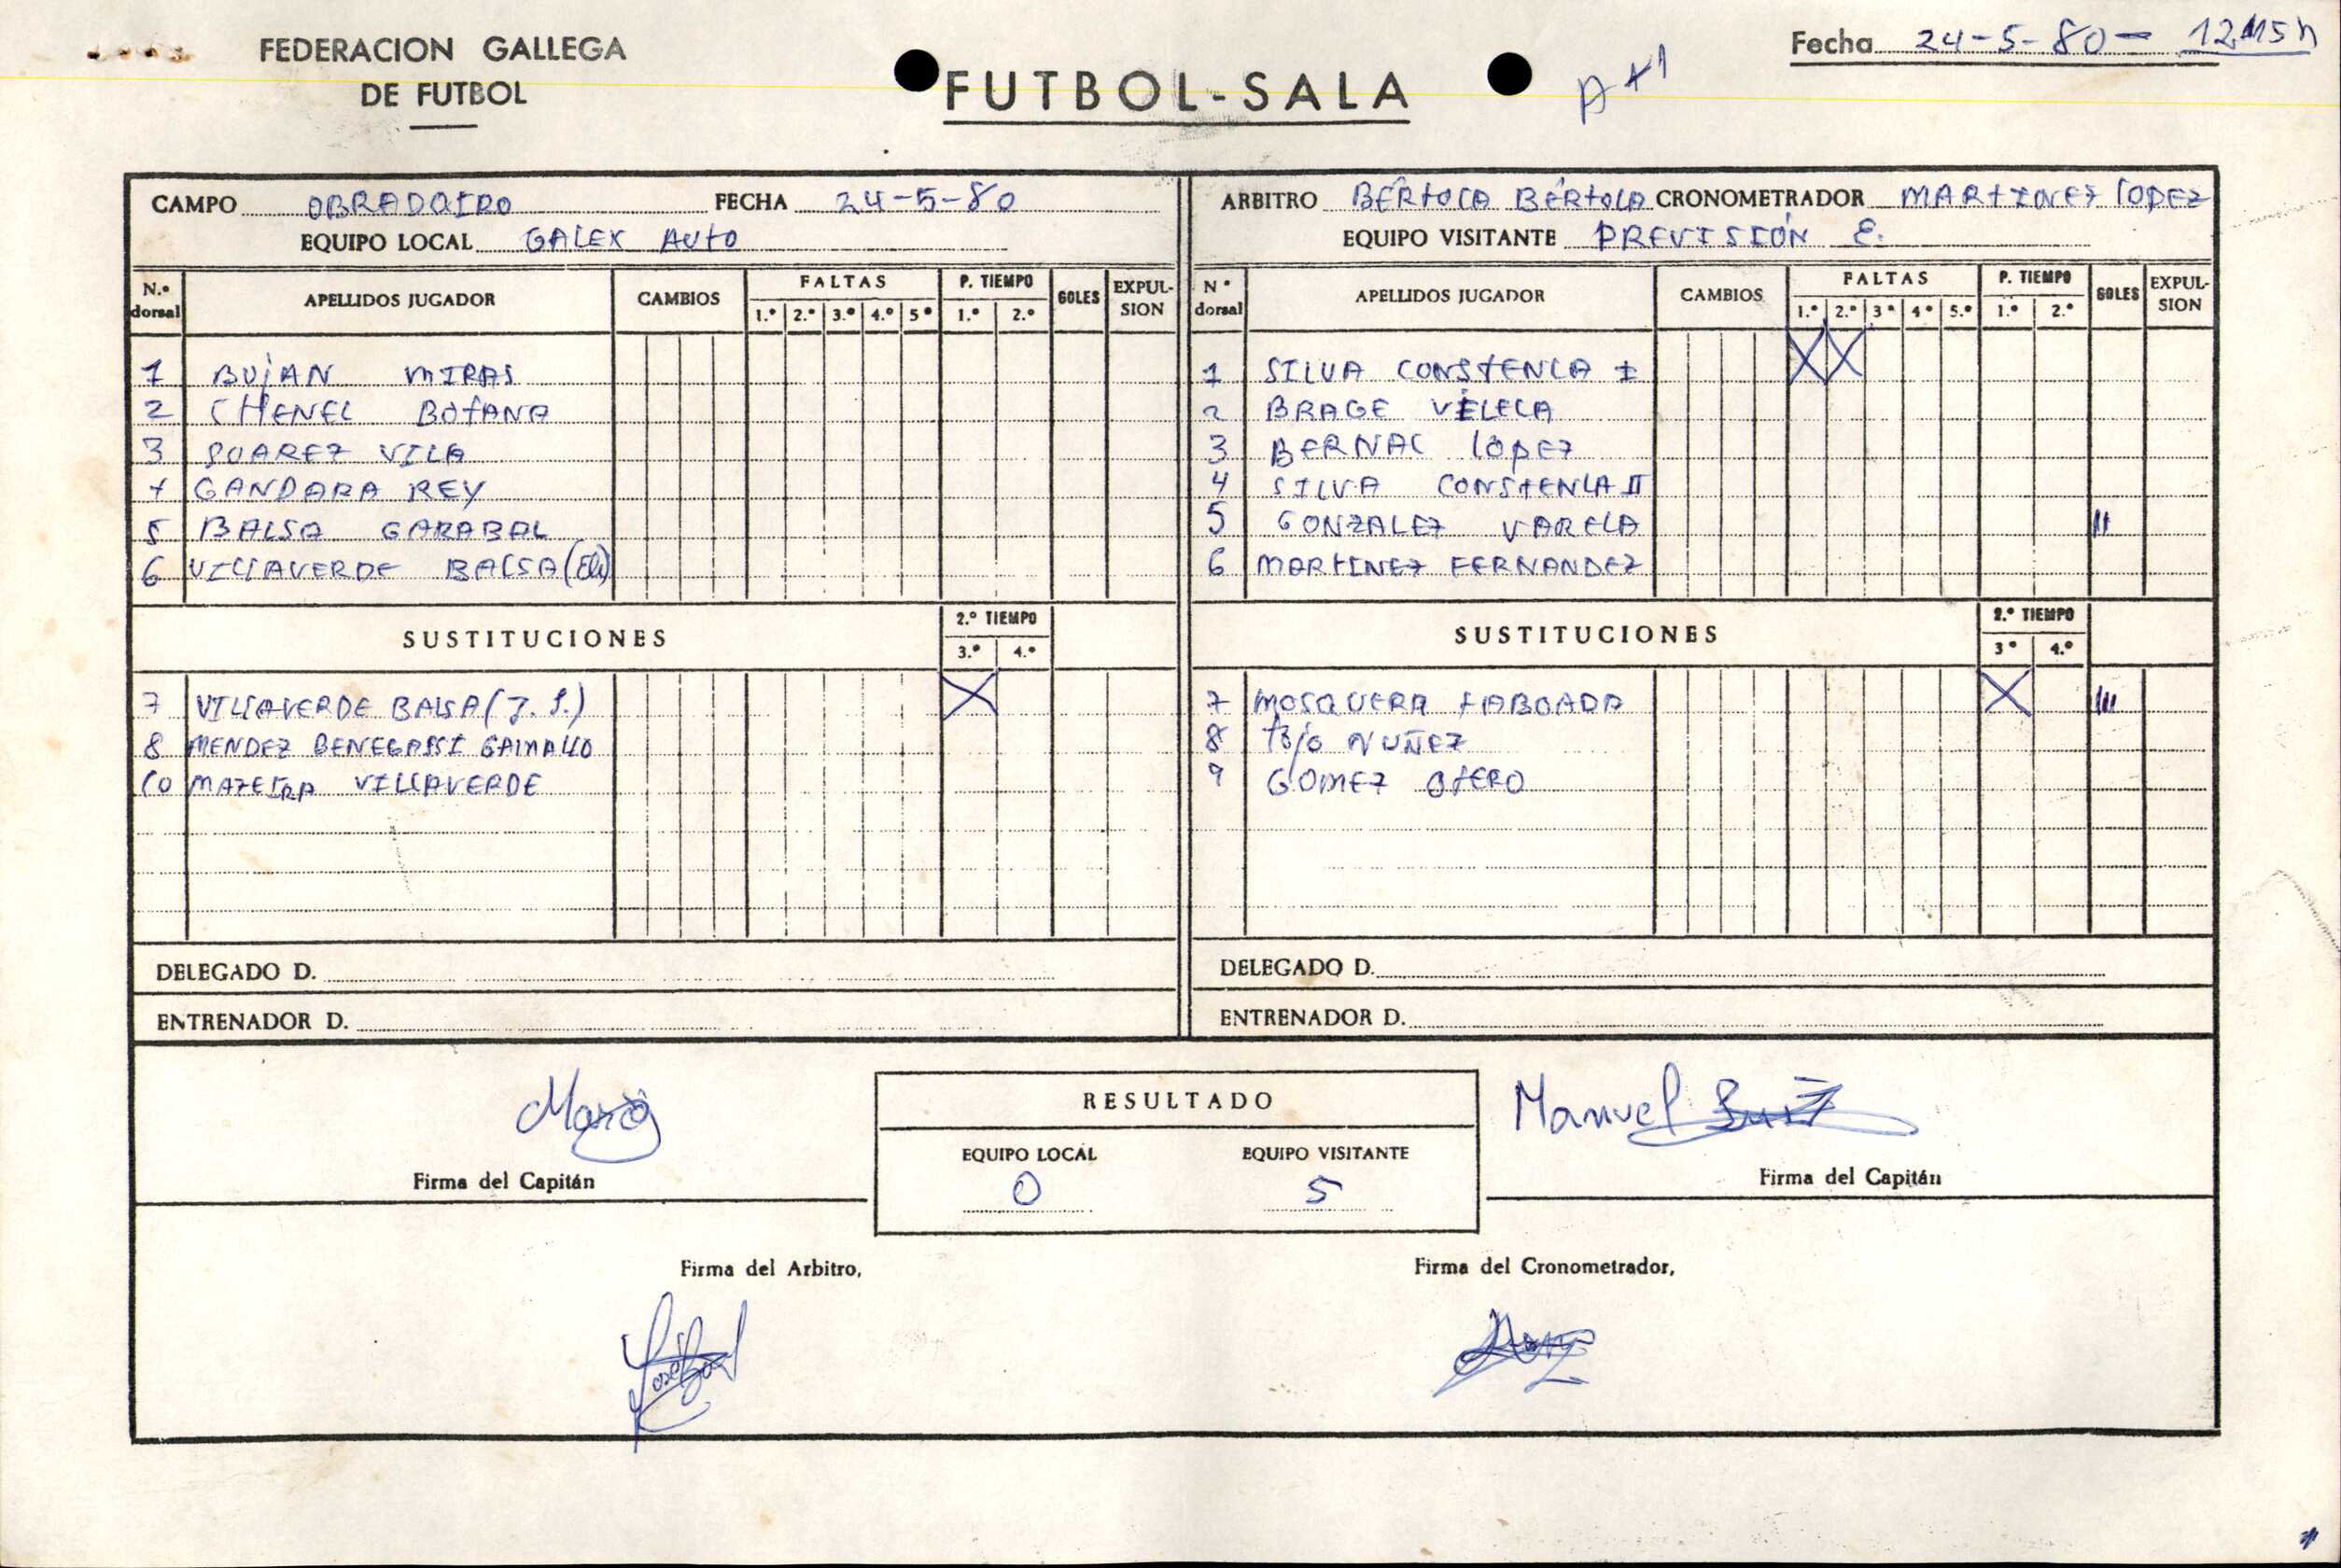 FEDERACION GALLEGA
DE FUTBOL
FUTBOL-SALA
Fecha 24-5-80- 12'15 h
CAMPO OBRADOIRO FECHA 24-5-80
EQUIPO LOCAL GALEX AUTO
N.º dorsal APELLIDOS JUGADOR CAMBIOS FALTAS 1.º 2.º 3.º 4.º 5º P. TIEMPO 1.º 2.º GOLES EXPUL-SION
1 BUJAN MIRAS
2 CHENEL BOTANA
3 SUAREZ VILA
4 GANDARA REY
5 BALSA GARABAL
6 VILLAVERDE BALSA
SUSTITUCIONES 2.º TIEMPO 3.º 4.º
7 VILLAVERDE BALSA (J. S.) X
8 MENDEZ BENEGASSI GAMALLO
10 MAZEIRA VILLAVERDE
DELEGADO D.
ENTRENADOR D.
ARBITRO BÉRTOLA BÉRTOLA CRONOMETRADOR MARTINEZ LOPEZ
EQUIPO VISITANTE PREVISIÓN E.
Nº dorsal APELLIDOS JUGADOR CAMBIOS FALTAS 1.º 2.º 3º 4º 5.º P. TIEMPO 1.º 2.º GOLES EXPUL-SION
1 SILVA CONSTENLA I X X
2 BRAGE VÉLELA
3 BERNAL LOPEZ
4 SILVA CONSTENLA II
5 GONZALEZ VARELA II
6 MARTINEZ FERNANDEZ
SUSTITUCIONES 2.º TIEMPO 3º 4.º
7 MOSQUERA TABOADA X III
8 TOJO NUÑEZ
9 GOMEZ OTERO
DELEGADO D.
ENTRENADOR D.
Firma del Capitán
RESULTADO
EQUIPO LOCAL EQUIPO VISITANTE
0 5
Manuel
Firma del Capitán
Firma del Arbitro,
Firma del Cronometrador,